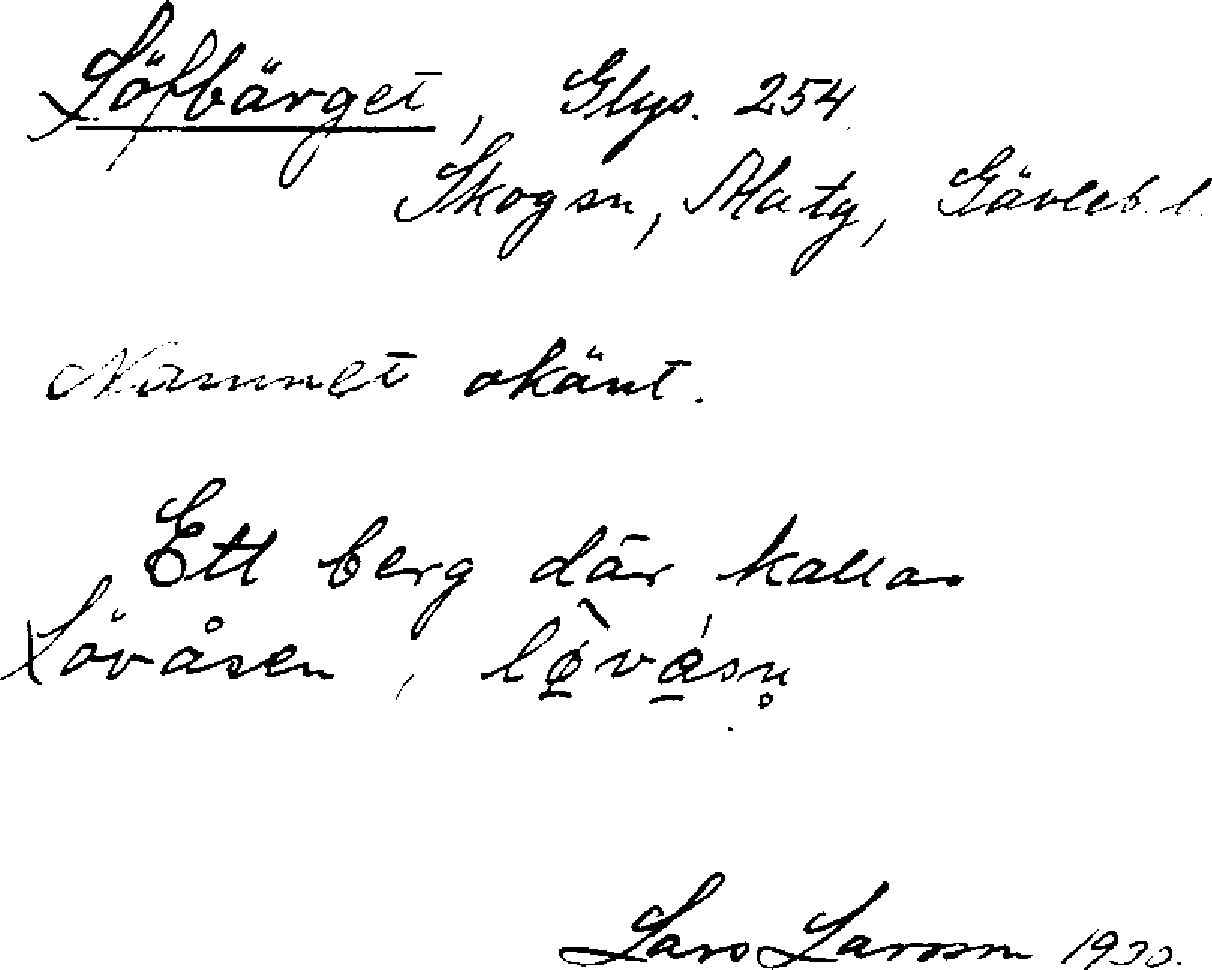 Löfbärget, Glys. 254
Skogsn, Maty, Gävleb. l.
Namnet okänt.
Ett berg där kallas
Lövåsen,
Lars Larsson 1930.